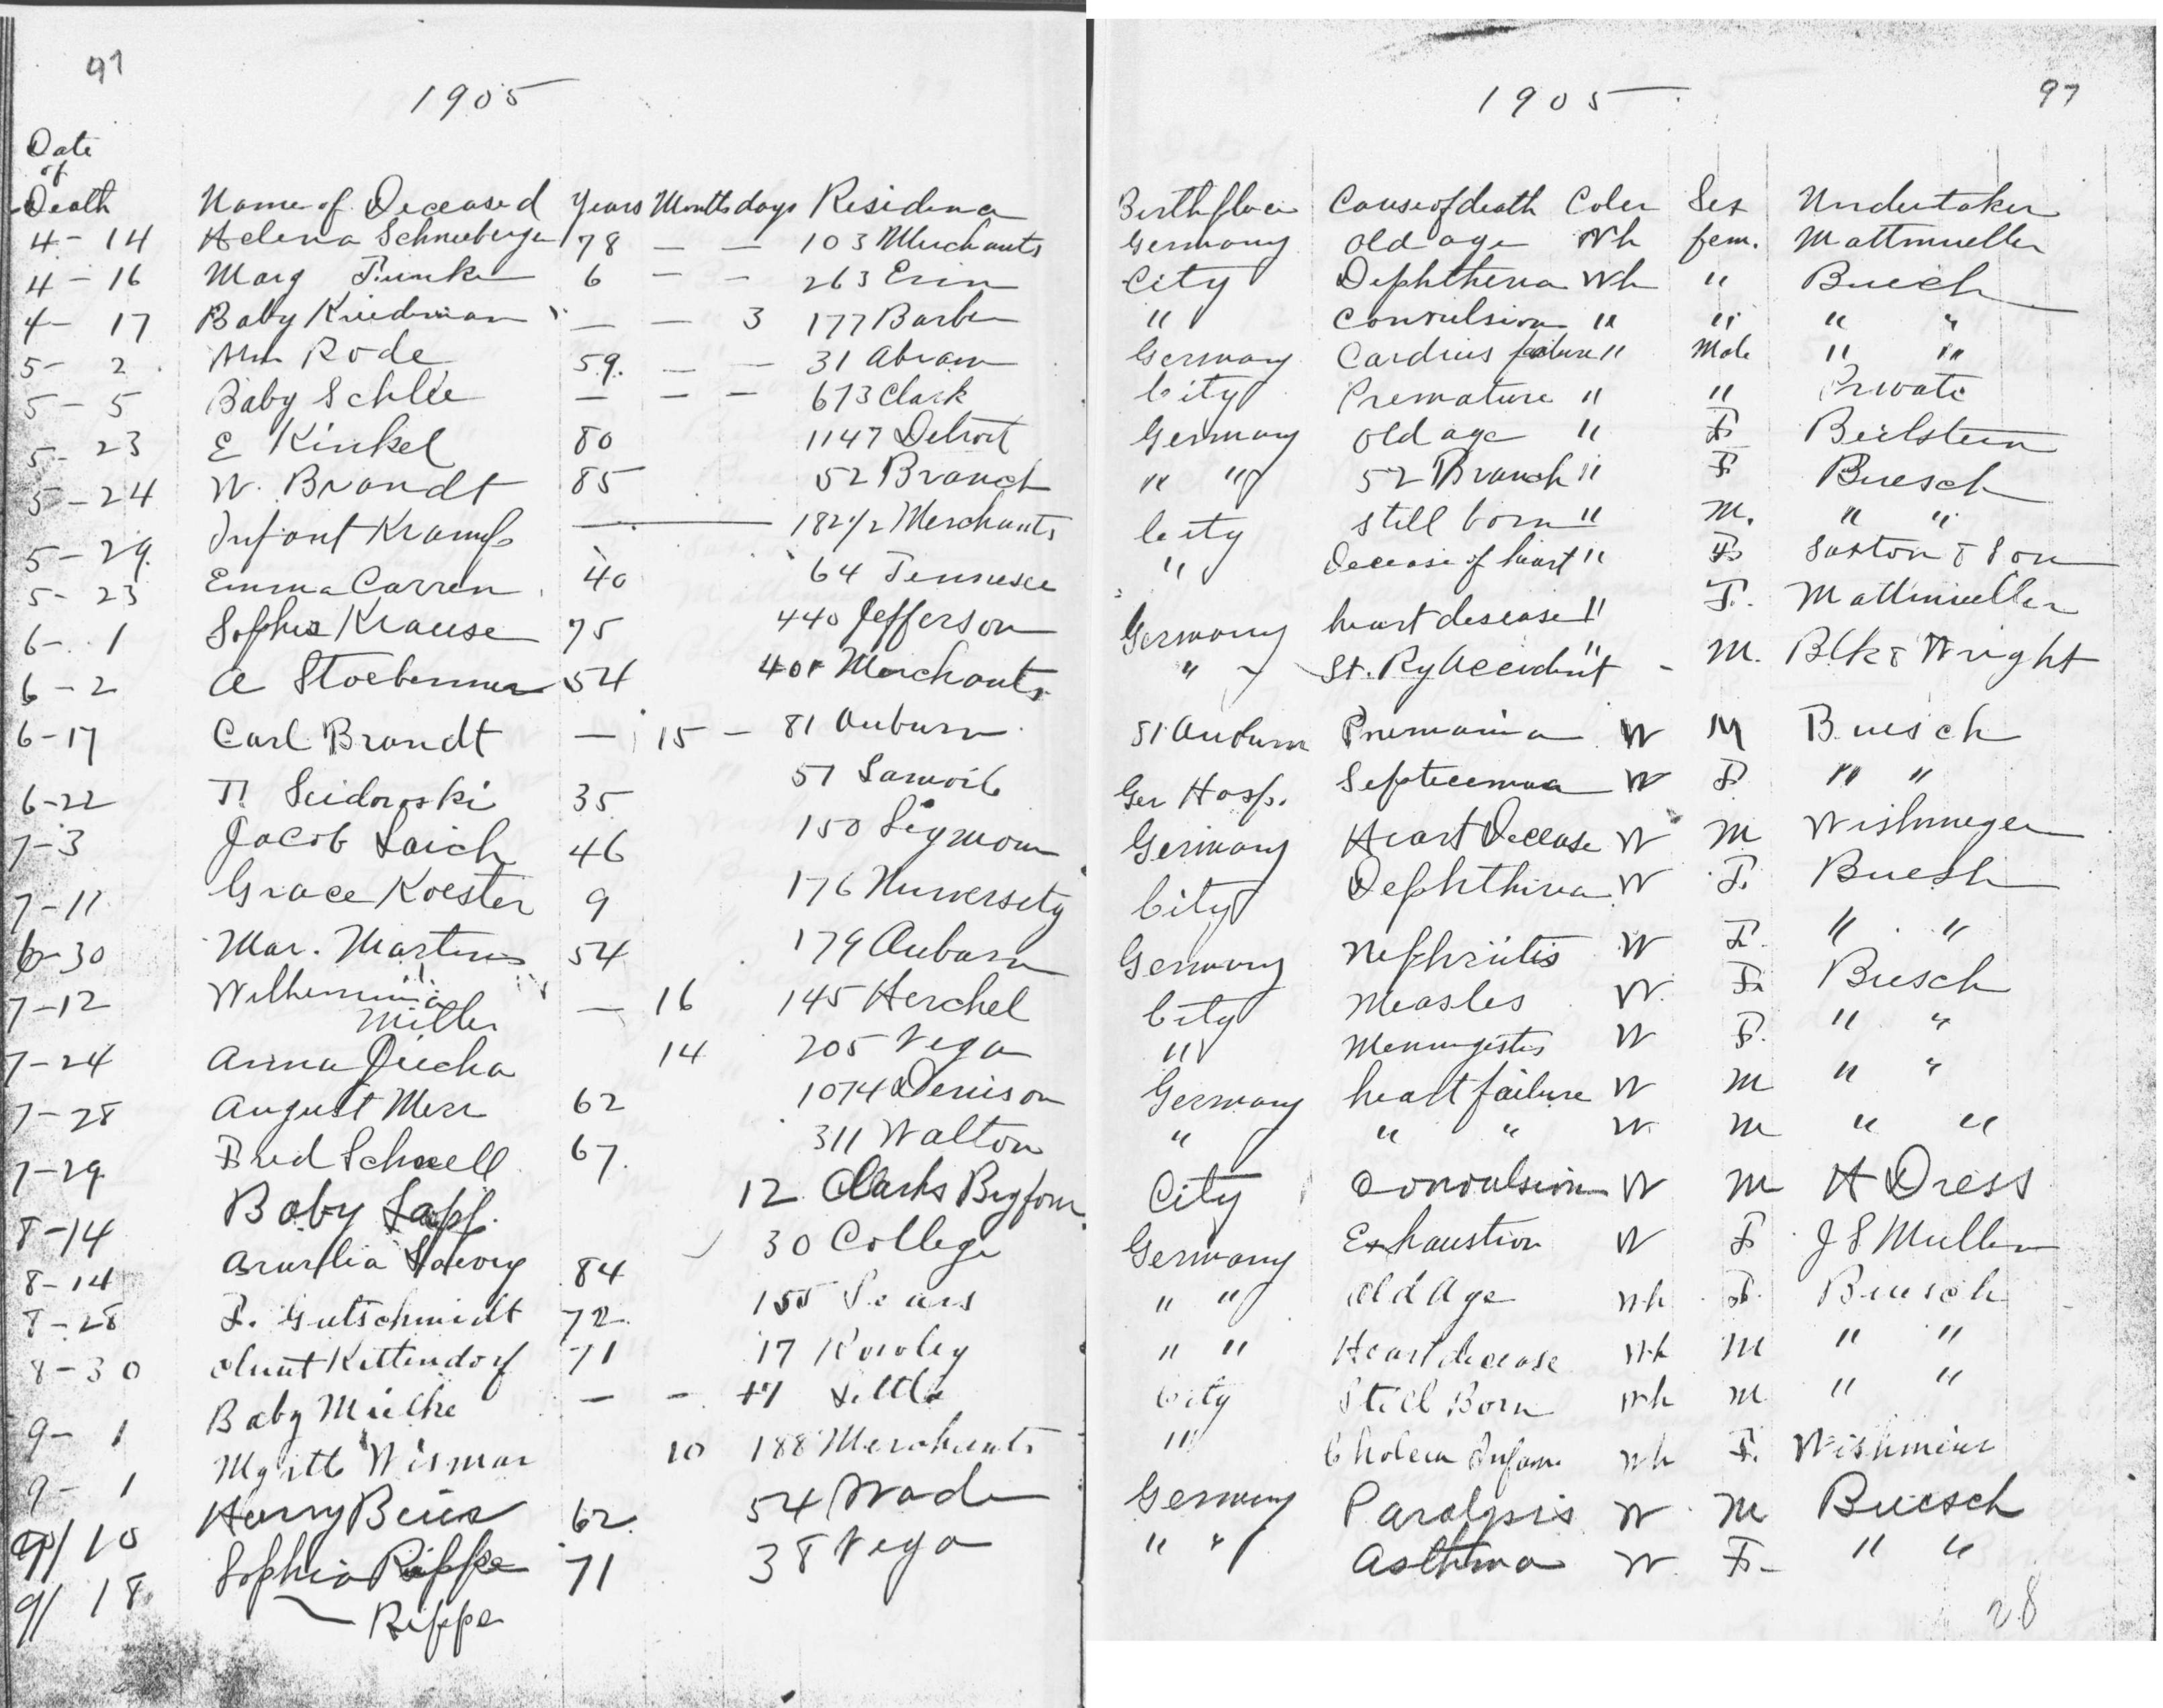 97
1905
Date
of
Death Name of Deceased Years Months days Residence
4-14 Helena Schneeberger 78 — — 103 Merchants
4-16 Marg Funke 6 — — 263 Erin
4-17 Baby Kriedeman — — 3 177 Barber
5-2 Wm Rode 59. — — 31 Abram
5-5 Baby Schlee — — — 673 Clark
5-23 E Kinkel 80 1147 Detroit
5-24 W. Brandt 85 52 Branch
5-29 Infant Kramp — 182 1/2 Merchants
5-23 Emma Carren 40 64 Tennesee
6-1 Sophia Krause 75 440 Jefferson
6-2 A 54 401 Merchants
6-17 Carl Brandt — 15 — 81 Auburn
6-22 T. Seidowski 35 57
7-3 Jacob Laich 46 150 Seymour
7-11 Grace Koester 9 176
6-30 Mar. Martins 54 179 Auburn
7-12 Wilhemmina
Miller — 16 145 Herchel
7-24 Anna Jiecha 14 205 Vega
7-28 August Merr 62 1074 Denison
7-29 Fred Schnell 67. 311 Walton
8-14 Baby Sapf. 12 Clarks
8-14 84 30 College
8-28 F. Gutschmidt 72 155 Sears
8-30 Kettendorf 71 17 Rowley
9-1 Baby Mielke — — 47 Little
9-1 Myrtle Wismar 10 188 Merchants
9/10 Harry Beier 62. 54 Wade
9/18 Sophia Rippe 71 38 Vega
— Rippe
1905 97
Birthplace Cause of death Coler Sex Undertaker
Germany Old age Wh fem. Mattmueller
City Dephtheria Wh " Buech
" Convulsion " " " "
Germany Cardius failure " Male " "
City Premature " " Private
Germany old age " F Beilstein
" " 52 Branch " F Buesch
City still born " M. " "
" Decease of heart " F Saxton & Son
Germany heart desease " F. Mattmueller
" St. Ry Accident " - M. Blk & Wright
81 Auburn Pnemonia W M Buesch
Ger Hosp. Septecemia W F " "
Germany Heart Decease W M Wishmeyer
City Dephtheria W F. Buesh
Germany Nephriitis W F. " "
City Measles W. F. Buesch
" Menengestis W F. " "
Germany heart failure W M " "
" " " W. M " "
City Convulsion W M H Dress
Germany Exhaustion W F J S Muller
" " Old Age Wh F. Buesch
" " Heart decease Wh M " "
City Still Born Wh M " "
" Cholera Infam Wh F. Wishmier
Germany Paralysis W M Buesch
" " Asthma W. F- " "
28